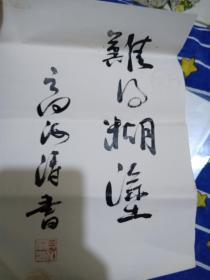 難得糊塗
高海濤書